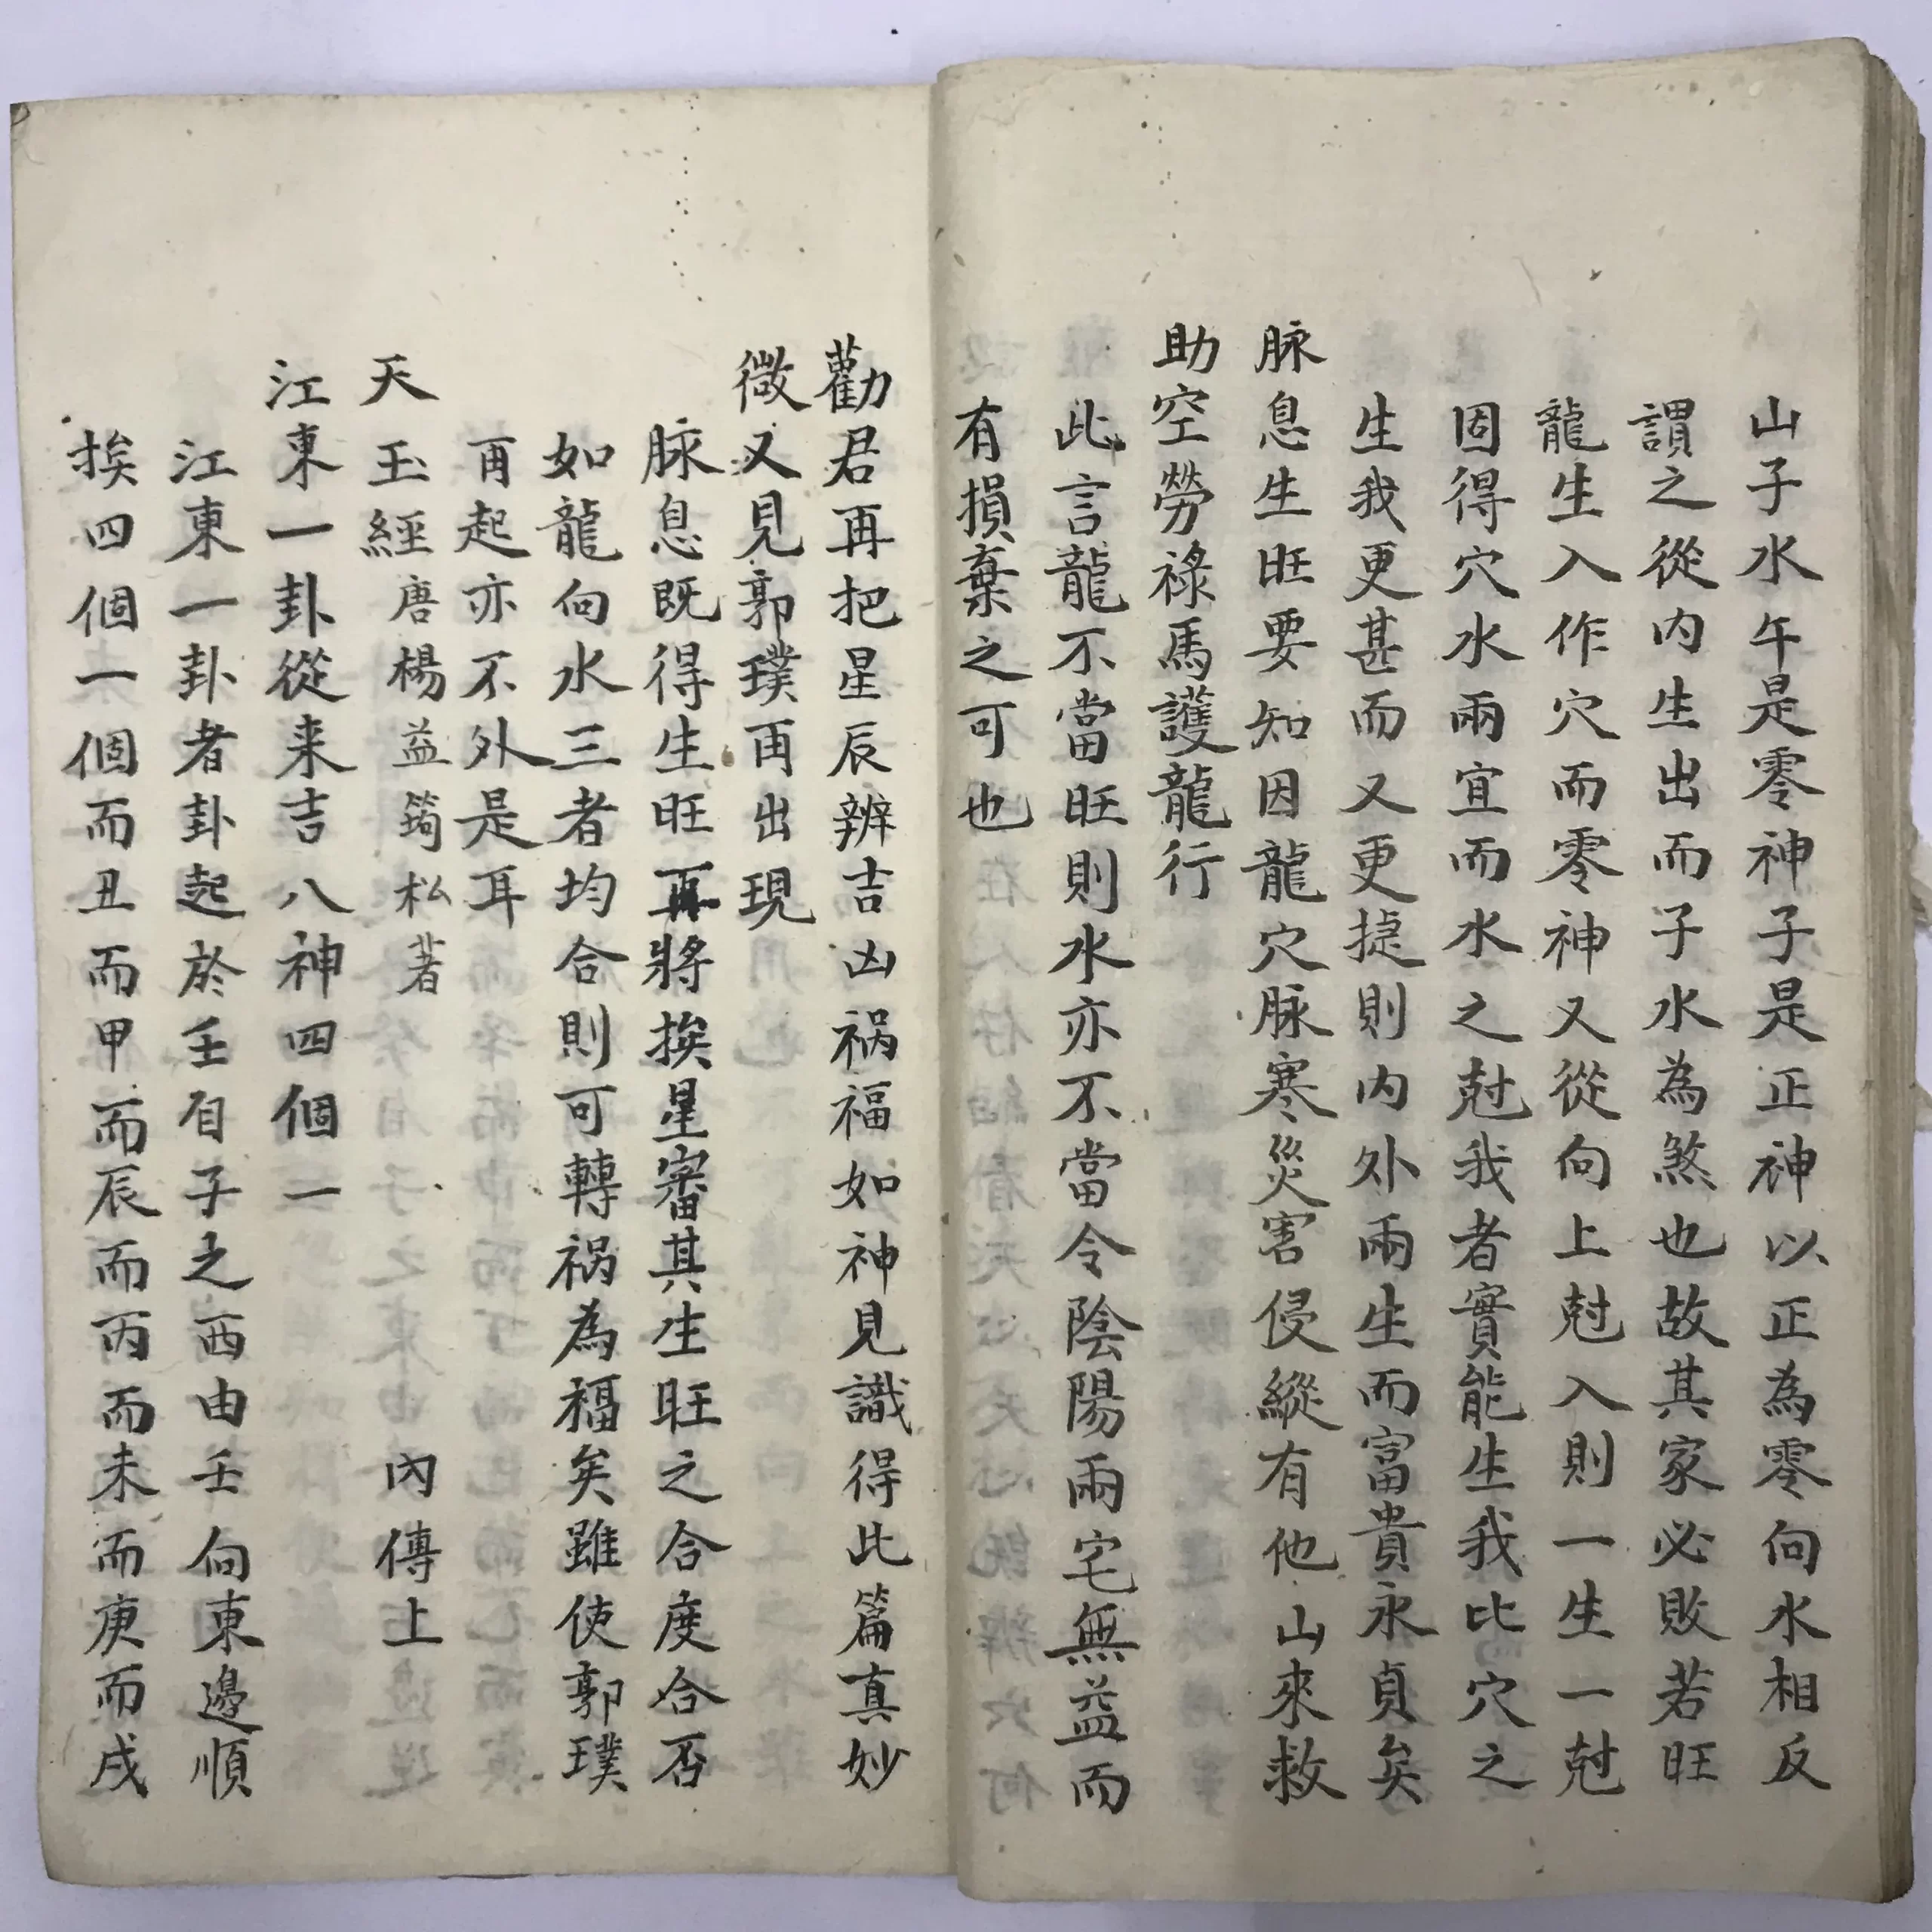 山子水午是零神子是正神以正為零向水相反
謂之從内生出而子水為煞也故其家必敗若旺
龍生入作穴而零神又從向上尅入則一生一尅
固得穴水兩宜而水之尅我者實能生我比穴之
生我更甚而又更捷則内外兩生而富貴永貞矣
脉息生旺要知因龍穴脉寒災害侵縱有他山來救
助空勞祿馬護龍行
此言龍不當旺則水亦不當令陰陽兩宅無益而
有損棄之可也
勸君再把星辰辨吉凶禍福如神見識得此篇真妙
微又見郭璞再出現
脉息既得生旺再將挨星審其生旺之合度合否
如龍向水三者均合則可轉禍為福矣雖使郭璞
再起亦不外是耳
天玉經唐楊益筠松著 内傳上
江東一卦從来吉八神四個一
江東一卦者卦起於壬自子之西由壬向東邊順
挨四個一個而丑而甲而辰而丙而未而庚而戌